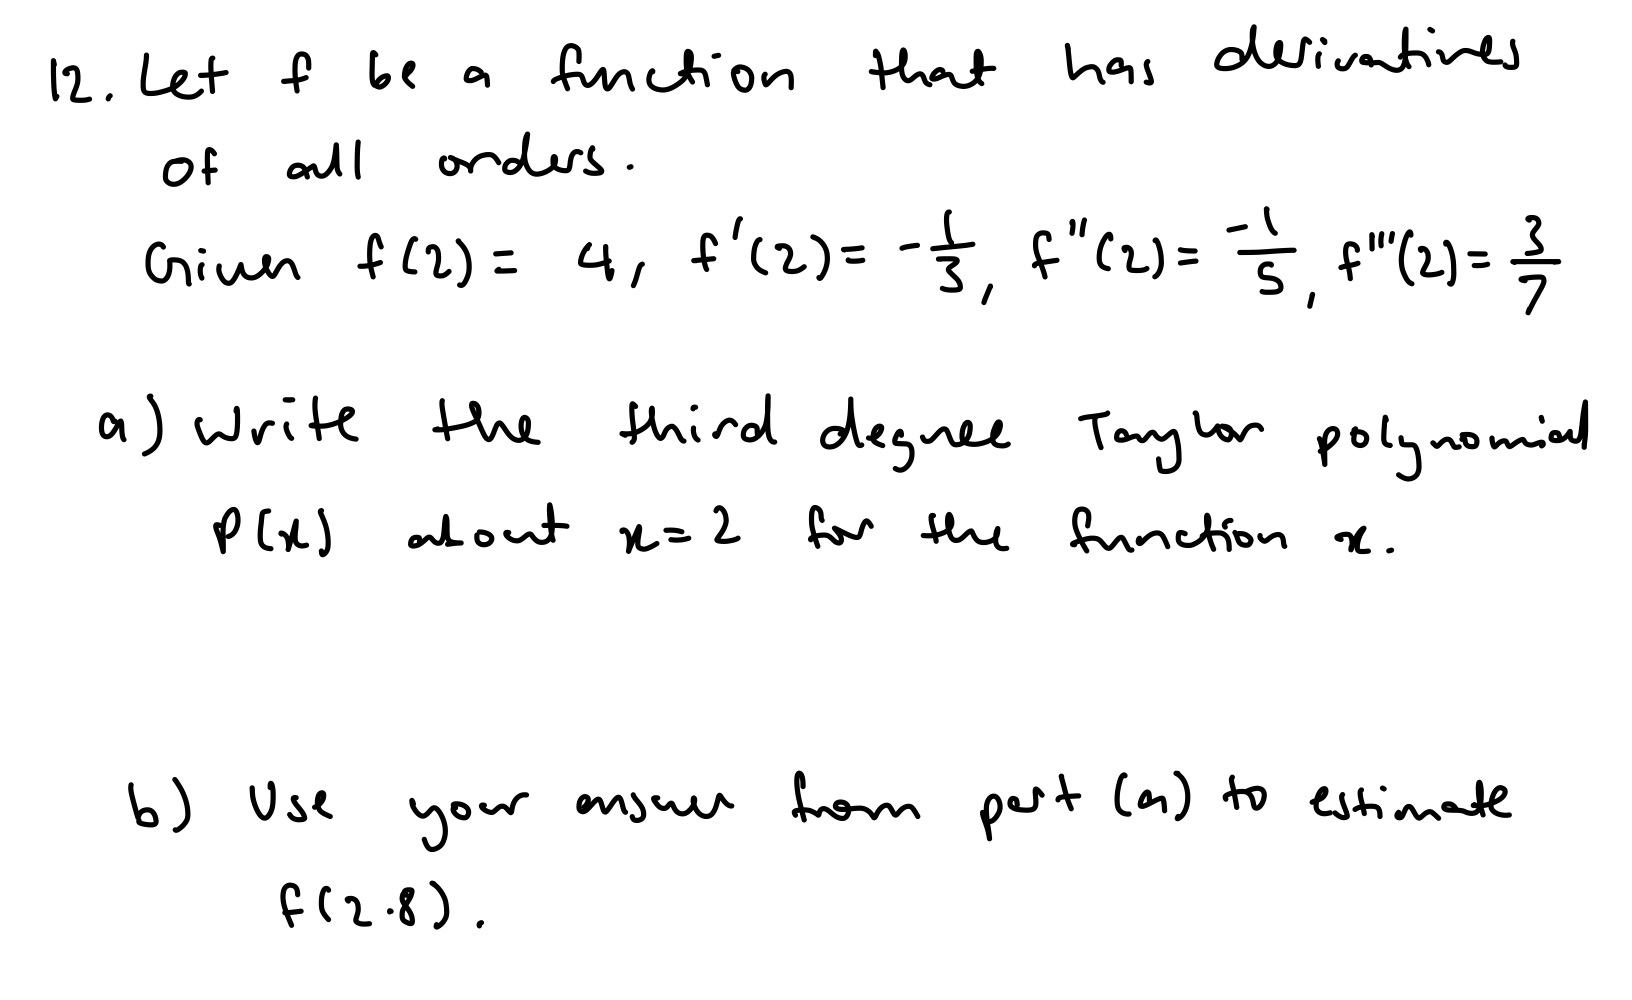 12. Let f be a function that has derivatives
of all orders.
Given f(2) = 4, f'(2) = -1/3, f''(2) = -1/5, f'''(2) = 3/7
a) Write the third degree Taylor polynomial
P(x) about x=2 for the function x.
b) Use your answer from part (a) to estimate
f(2.8).